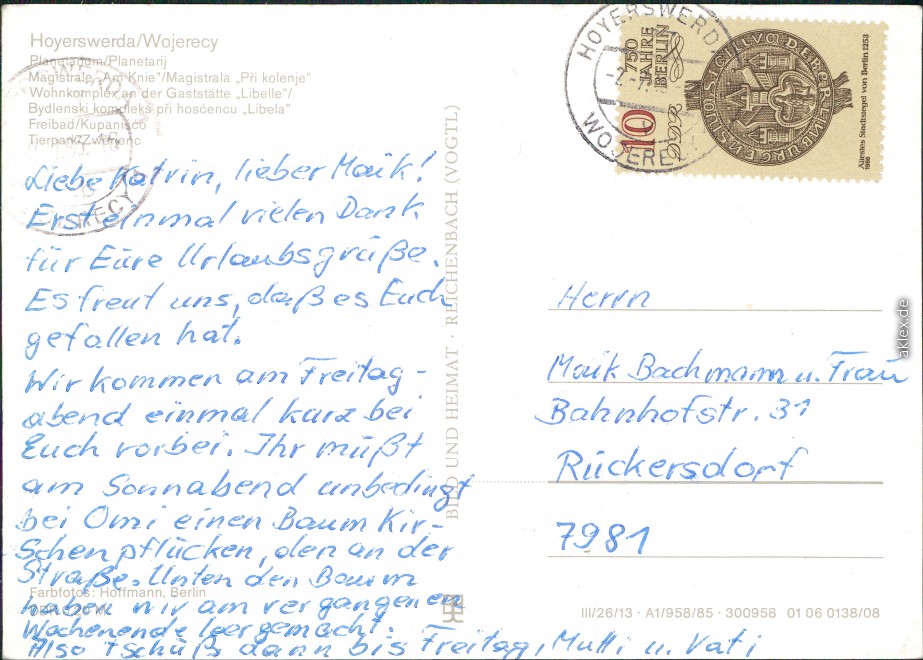 Hoyerswerda/Wojerecy
Planetarium/Planetarij
Magistrale „Am Knie"/Magistrala „Při kolenje"
Wohnkomplex an der Gaststätte „Libelle"/
Bydlenski kompleks při hosćencu „Libela"
Freibad/Kupanišćo
Tierpark/Zwěrjenc
Liebe Katrin, lieber Maik!
Ersteinmal vielen Dank
für Eure Urlaubsgrüße.
Es freut uns, daß es Euch
gefallen hat.
Wir kommen am Freitag-
abend einmal kurz bei
Euch vorbei. Ihr müßt
am Sonnabend unbedingt
bei Omi einen Baum Kir-
schen pflücken, den an der
Straße. Unten den Baum
haben wir am vergangenen
Wochenende leergemacht.
Also tschüß dann bis Freitag, Mutti u. Vati
Farbfotos: Hoffmann, Berlin
BILD UND HEIMAT · REICHENBACH (VOGTL)
HOYERSWERDA
WOJERECY
750
JAHRE
BERLIN
10
DDR
Ältestes Stadtsiegel von Berlin 1253
1986
Herrn
Maik Bachmann u. Frau
Bahnhofstr. 31
Rückersdorf
7981
III/26/13 · A1/958/85 · 300958 01 06 0138/08
aklex.de